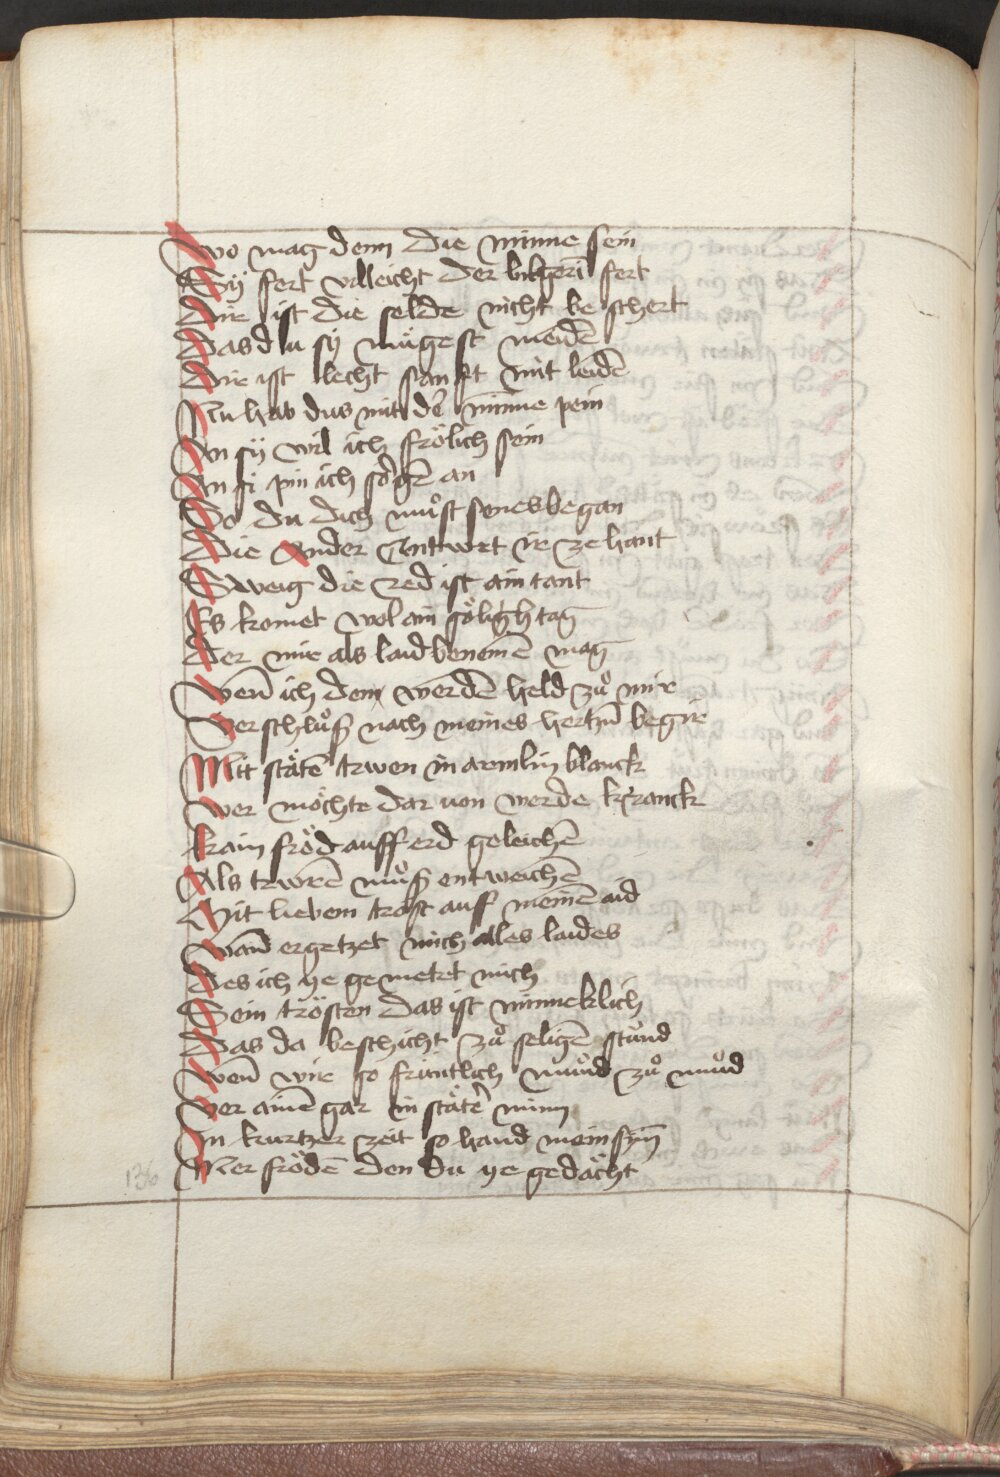 Wo mag denn die minne sein
Sÿ fert villeicht der bilgerī fert
Dir ist die selde nicht be schert
Das du sÿ mügest meidē
Dir ist lecht sanfft mit leidē
Nu hab dus mit dē minne pein
An sÿ wil ich frölich sein
An si pin ich sorgē an
So du dich muͦst senes began
Die Ander Antwrt ir ze hant
Sweig die red ist ain tant
Es komet wol ain sälightag
Der mir als laid benemē mag
Wen̄ ich dem werdē held zuͦ mir
Ver schluͦß nach meines hertzē begir
Mitt stätē trwen in ärmlin blanck
Wer möchte dar uon werde kranck
kain fröd auff erd geleichē
Als trwrē muͦß entweichē
Mit liebem trost auf meinē aid
Wan̄ ergetzet mich alles laides
Des ich ye ge mettet mich
Sein trösten das ist minneklich
Das da beschicht zuͦ seligē stund
Wen̄ wir so früntlich muͦnd zuͦ muͦnd
Ver ainē gar in stätē minn
In kurtzer zeit so hand mein syn̄
Mer frödē den du ye gedächt
136